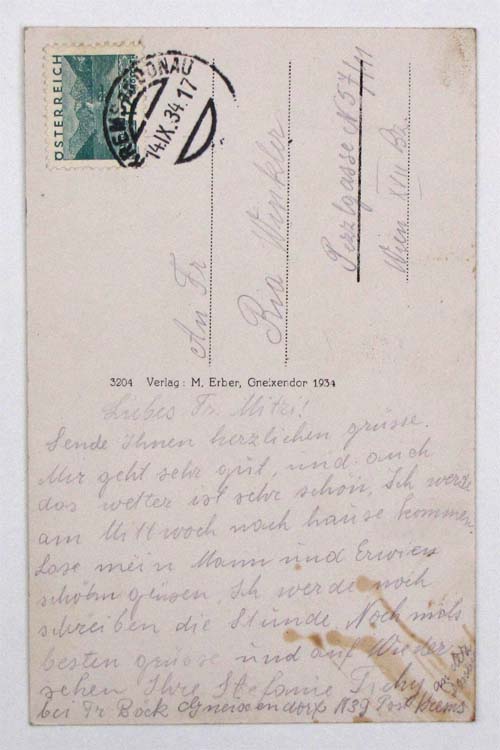 ÖSTERREICH
KREMS DONAU
14.IX.34.17
An Fr
Ria Winkler
Pezzlgasse N 57/11
Wien XVII Bz
3204 Verlag: M. Erber, Gneixendorf 1934
Liebes Fr. Mitzi!
Sende Ihnen herzlichen grüsse.
Mir geht sehr gut, und auch
das wetter ist sehr schön. Ich werde
am Mittwoch nach hause kommen.
Lase mein Mann und Erwien
schöhn grüsen. Ich werde noch
schreiben die Stunde. Noch mals
besten grüsse und auf Wieder
sehen Ihre Stefanie
bei Fr Böck Gneixendorf N39 Post Krems